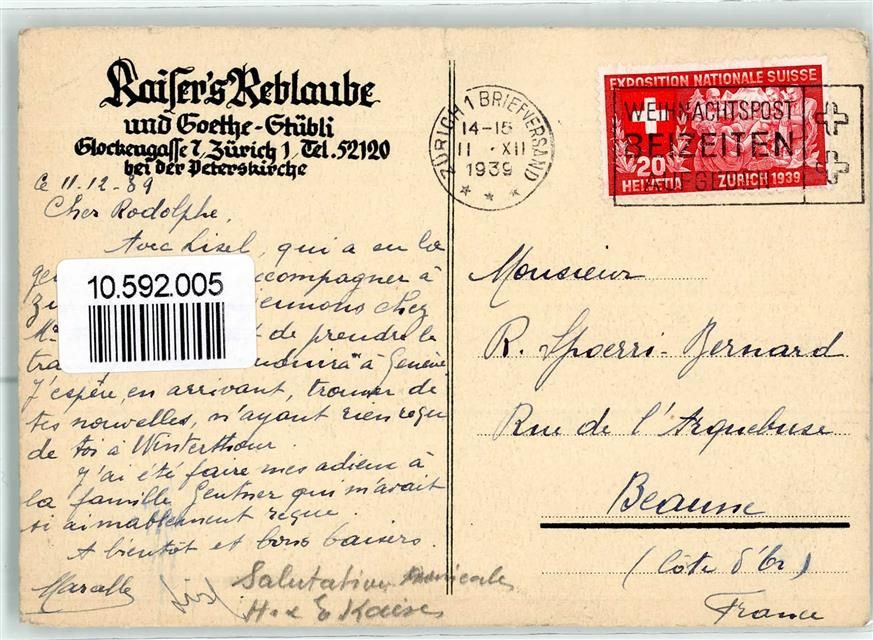 Kaiser's Reblaube
und Goethe-Stübli
Glockengasse 7, Zürich 1, Tel. 52120
bei der Peterskirche
ce 11.12.39
Cher Rodolphe,
Avec Lisel, qui a eu la
compagner à
chez
de prendre le
à Genève
J'espère, en arrivant, trouver de
tes nouvelles, n'ayant rien reçu
de toi à Winterthour.
J'ai été faire mes adieux à
la famille Gentner qui m'avait
si aimablement reçue.
A bientôt et bons baisers.
Marcelle
Salutations amicales
H. & E Kaiser
10.592.005
ZÜRICH 1 BRIEFVERSAND
14-15
11. XII
1939
EXPOSITION NATIONALE SUISSE
WEIHNACHTSPOST
BEIZEITEN
20
HELVETIA ZURICH 1939
Monsieur
R. Spoerri-Bernard
Rue de l'Arquebuse
Beaune
(Côte d'Or)
France